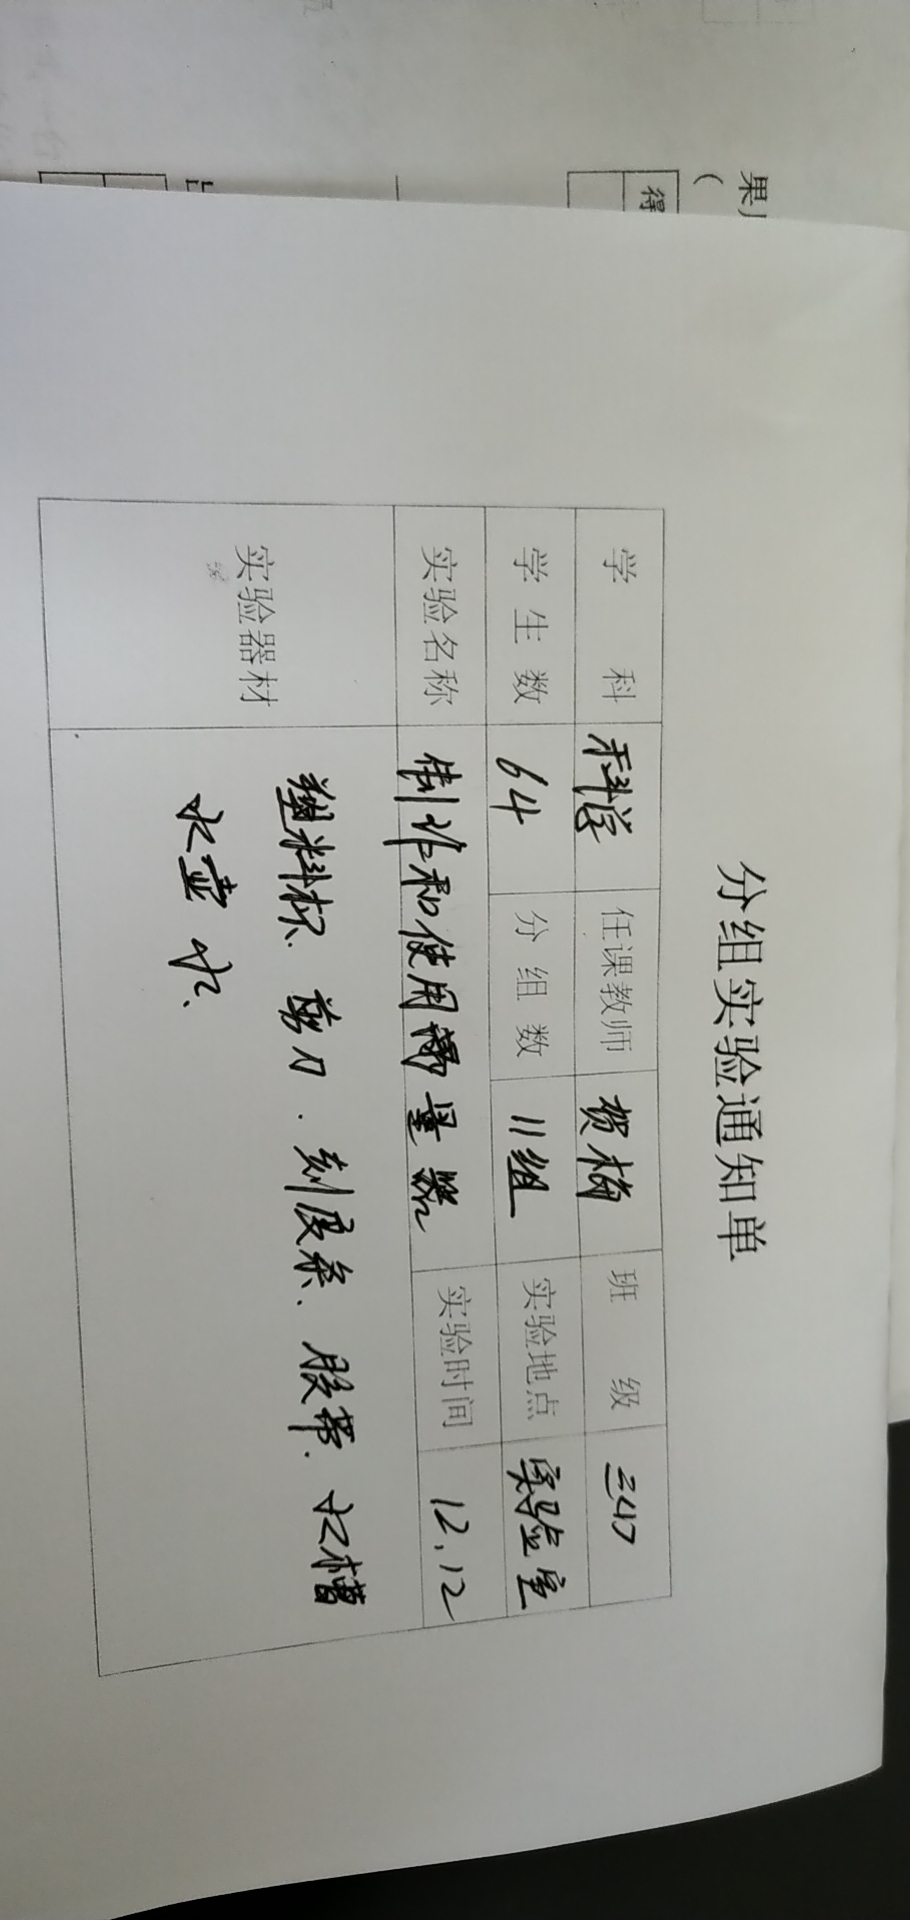 分组实验通知单
学 科 科学 任课教师 贺梅 班 级
学生数 64 分组数 11组 实验地点 实验室
实验名称 制作和使用雨量器 实验时间 12.12
实验器材 塑料杯、剪刀、刻度条、胶带、水槽
水壶 水、
果
(
得